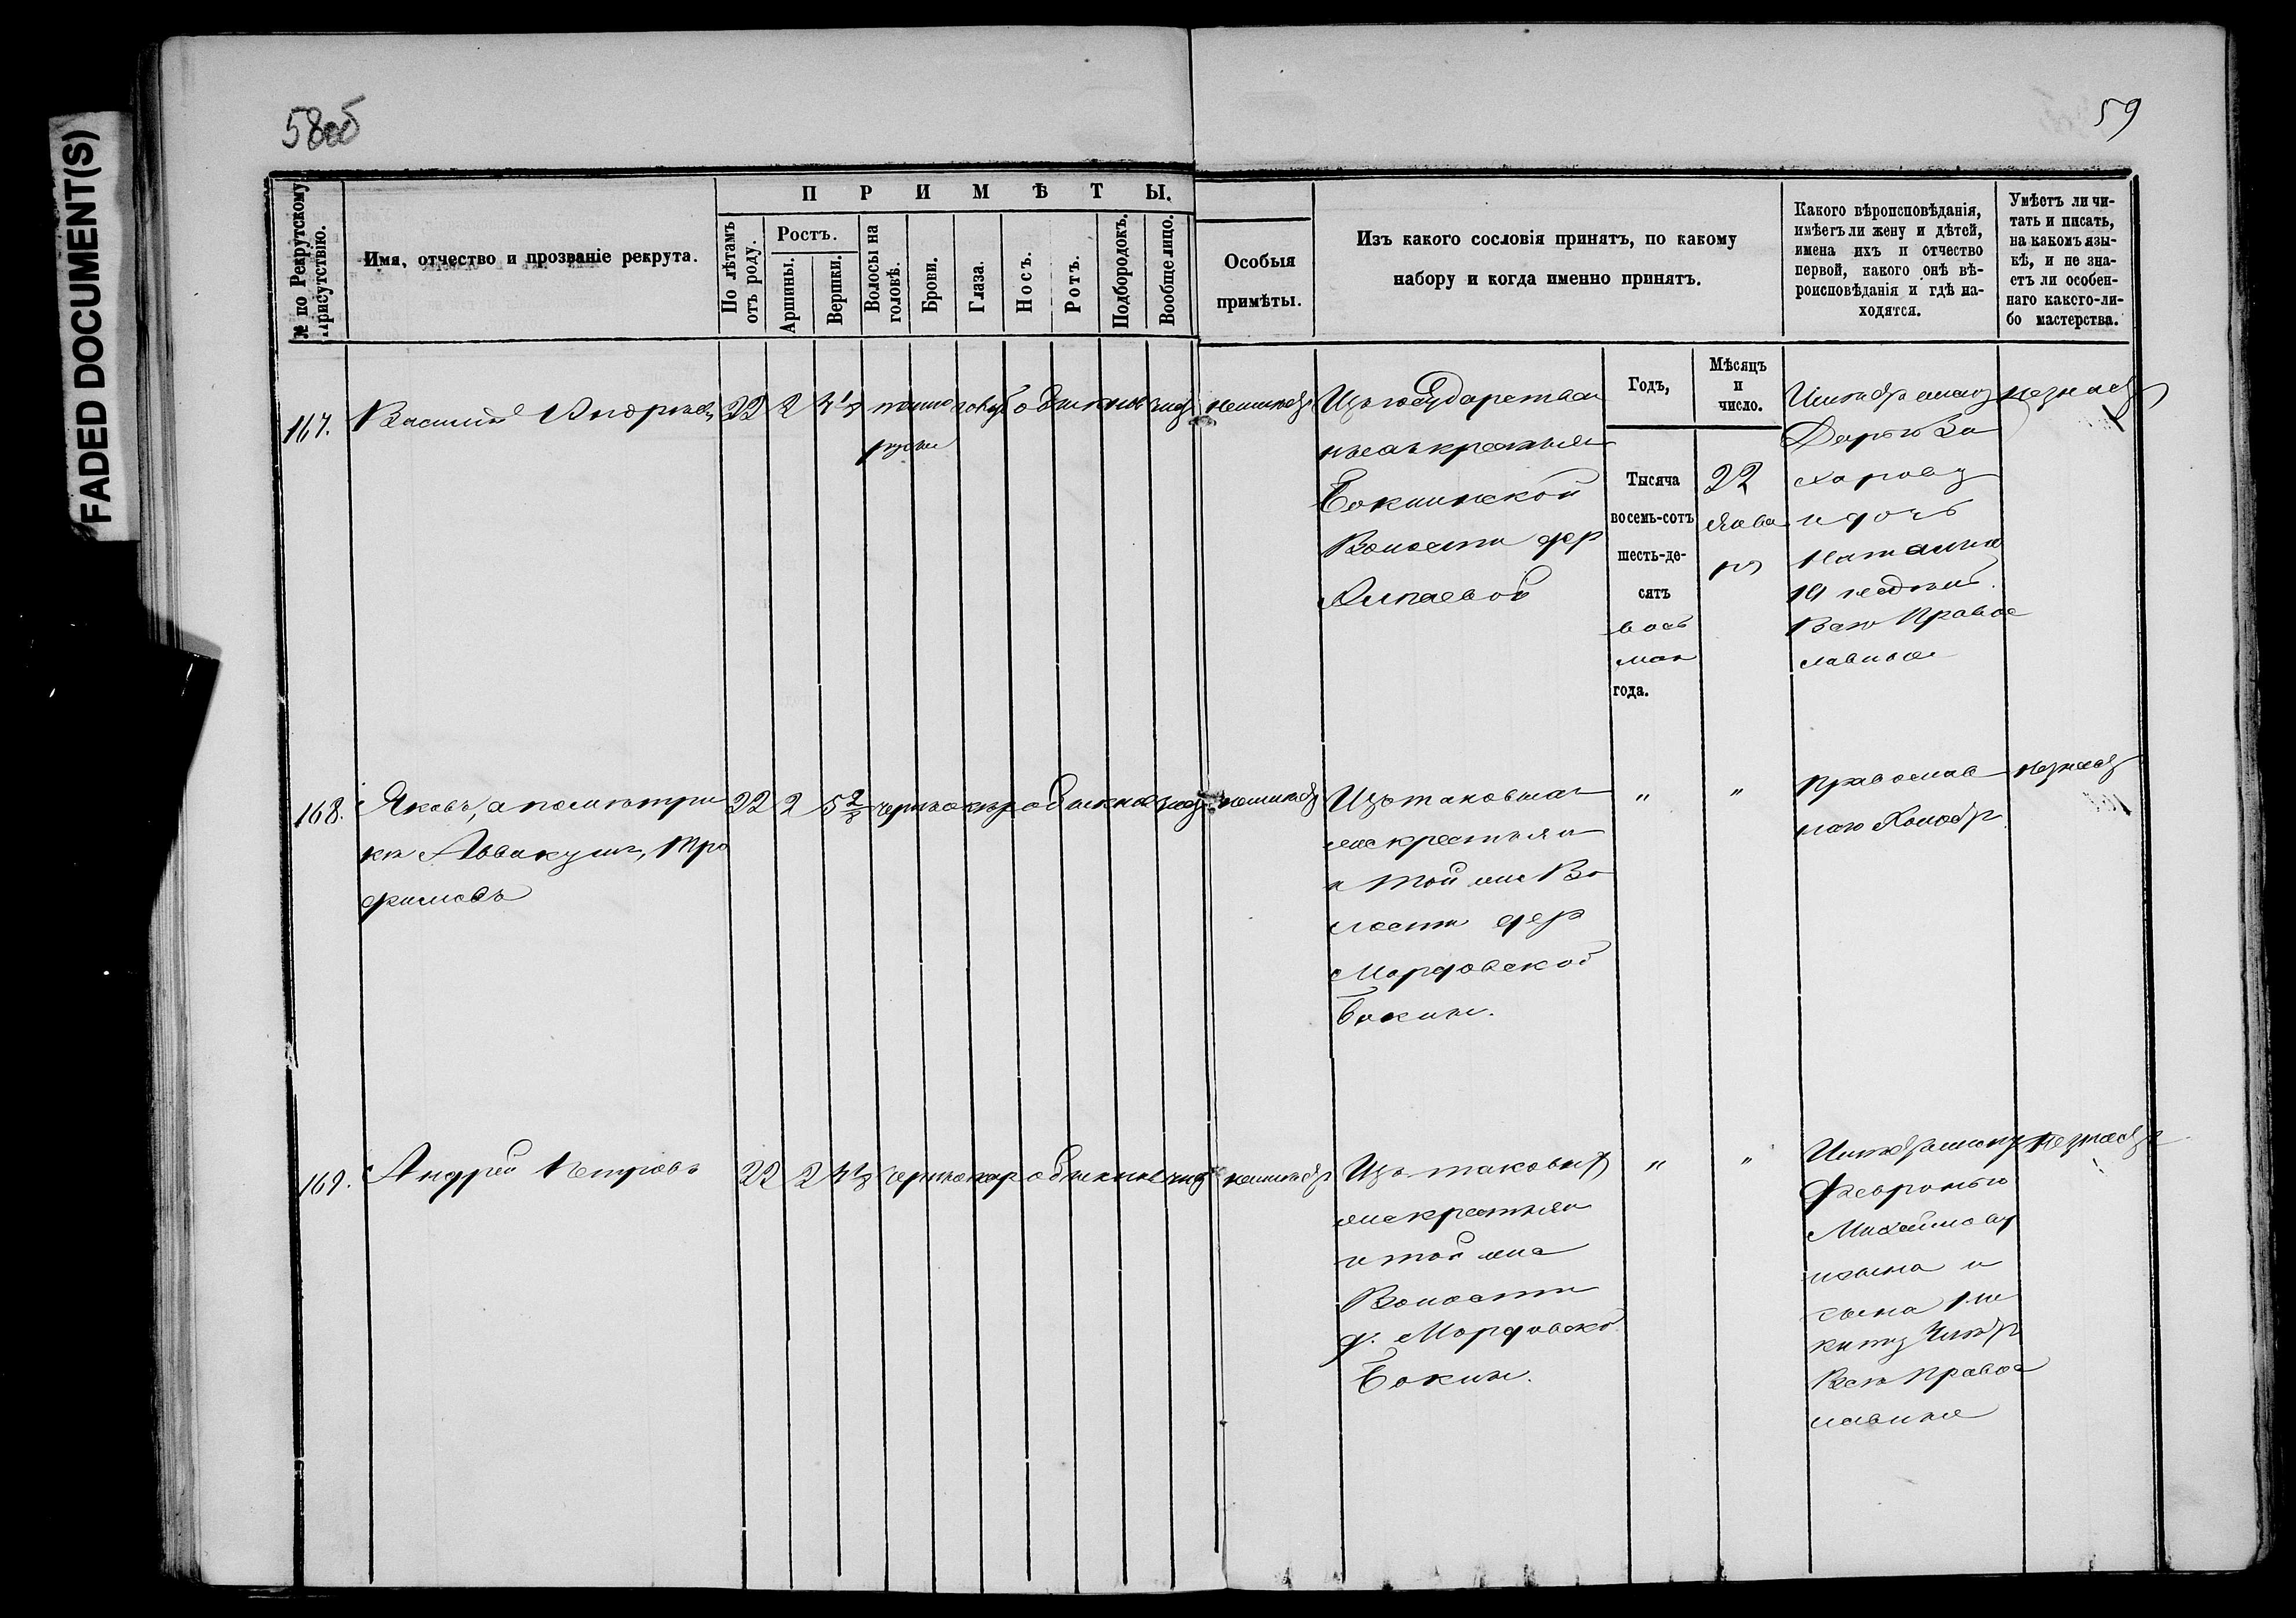 FADED DOCUMENT(S)
58об
59
№ по Рекрутскому Присутствію.
Имя, отчество и прозваніе рекрута.
ПРИМѢТЫ.
По лѣтамъ отъ роду.
Ростъ.
Аршины.
Вершки.
Волосы на головѣ.
Брови.
Глаза.
Носъ.
Ротъ.
Подбородокъ.
Вообще лицо.
Особыя
примѣты.
Изъ какого сословія принятъ, по какому
набору и когда именно принятъ.
Какого вѣроисповѣданія,
имѣетъ ли жену и дѣтей,
имена ихъ и отчество
первой, какого онѣ вѣ-
роисповѣданія и гдѣ на-
ходятся.
Умѣетъ ли чи-
тать и писать,
на какомъ язы-
кѣ, и не зна-
етъ ли особен-
наго какого-ли-
бо мастерства.
Годъ,
Мѣсяцъ
и
число.
167. Василій Андреевъ 22 2 темно голуб обыкнов чист неимѣетъ
русые
Изъ государствен
ныхъ крестьян
Бокинской
Волости дер
Тысяча
восемь-сотъ
шесть-де-
сятъ
вось
мого
года.
22
Янва
ря
Имѣетъ жену
Дарью За
харову
и дочь
Наталью
19 недѣль.
Всѣ Правос
лавные
незнаетъ
168. Яковъ, а по метри
кѣ Аввакумъ, Тро
фимовъ
22 2 5 2/8 черные кар обыкнов чист неимѣетъ
Изъ таковыхъ
же крестьян
и той же Во
лости дер
Мордовской
Бокины.
" "
Православ
наго Холостъ
незнаетъ
169. Андрей Петровъ 22 2 черные кар обыкнов чист неимѣетъ
Изъ таковыхъ
же крестьян
и той же
Волости
д. Мордовской
Бокины.
" "
Имѣетъ жену
Февронью
Михайлову
и сына Ни
киту
Всѣ Правос
лавные
незнаетъ